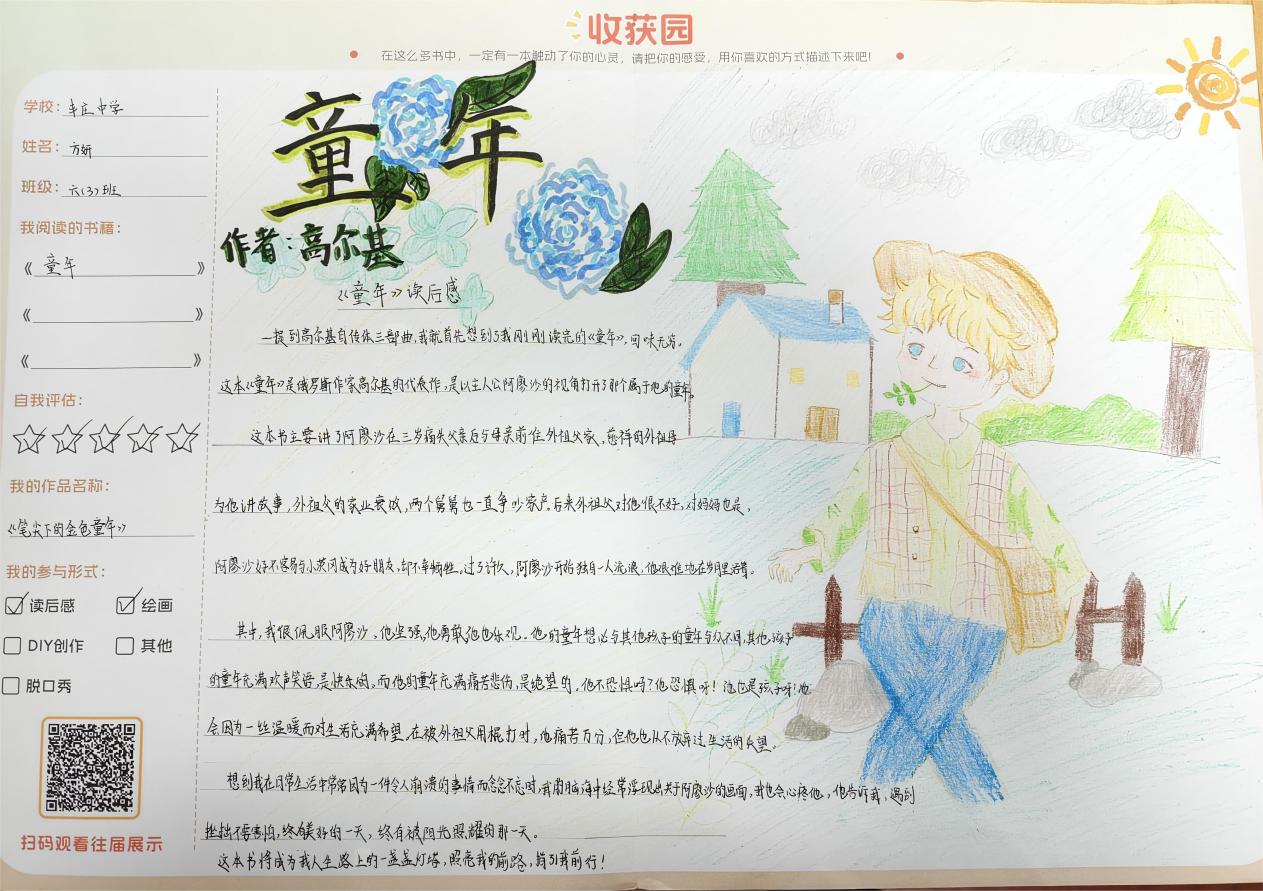 收获园
在这么多书中，一定有一本触动了你的心灵，请把你的感受，用你喜欢的方式描述下来吧！
学校：丰庄中学
姓名：方妍
班级：六(3)班
我阅读的书籍：
《童年》
《》
《》
自我评估：
我的作品名称：
《笔尖下的金色童年》
我的参与形式：
读后感 绘画
DIY创作 其他
脱口秀
扫码观看往届展示
童年
作者：高尔基
《童年》读后感
一提到高尔基自传体三部曲，我就首先想到了我刚刚读完的《童年》，回味无穷。
这本《童年》是俄罗斯作家高尔基的代表作，是以主人公阿廖沙的视角打开了那个属于他的童年。
这本书主要讲了阿廖沙在三岁痛失父亲后与母亲前住外祖父家，慈祥的外祖母
为他讲故事，外祖父的家业衰败，两个舅舅也一直争吵家产后来外祖父对他很不好，对妈妈也是，
阿廖沙好不容易与小茨冈成为好朋友，却不幸牺牲。过了许久，阿廖沙开始独自一人流浪，他艰难地在岁月里活着。
其中，我很佩服阿廖沙，他坚强他勇敢他也乐观。他的童年想必与其他孩子的童年与众不同，其他孩子
的童年充满欢声笑语，是快乐的。而他的童年充满痛苦悲伤，是绝望的。他不恐惧吗？他恐惧呀！他也是孩子呀！他
会因为一丝温暖而对生活充满希望。在被外祖父用棍打时，他痛苦万分，但他也从不放弃过生活的希望。
想到我在日常生活中常常因为一件令人崩溃的事情而念念不忘时，我的脑海中经常浮现出关于阿廖沙的画面，我也会心疼他，他告诉我，遇到
挫折不要害怕，终有美好的一天，终有被阳光照耀的那一天。
这本书将成为我人生路上的一盏盏灯塔，照亮我的前路，指引我前行！